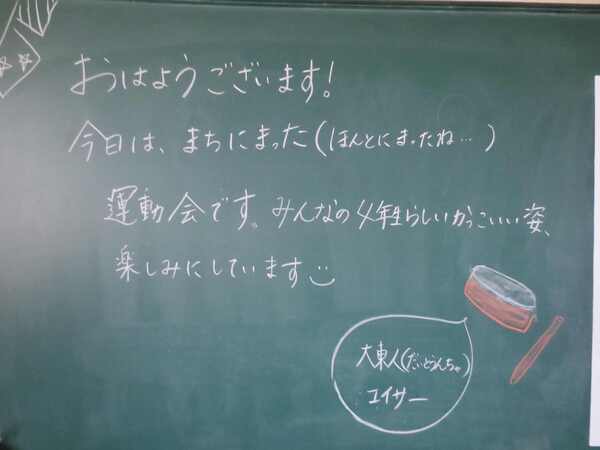 おはようございます!
今日は、まちにまった(ほんとにまったね…)
運動会です。みんなの4年生らしいかっこいい姿、
楽しみにしています
大東人(だいとうんちゅ)
エイサー